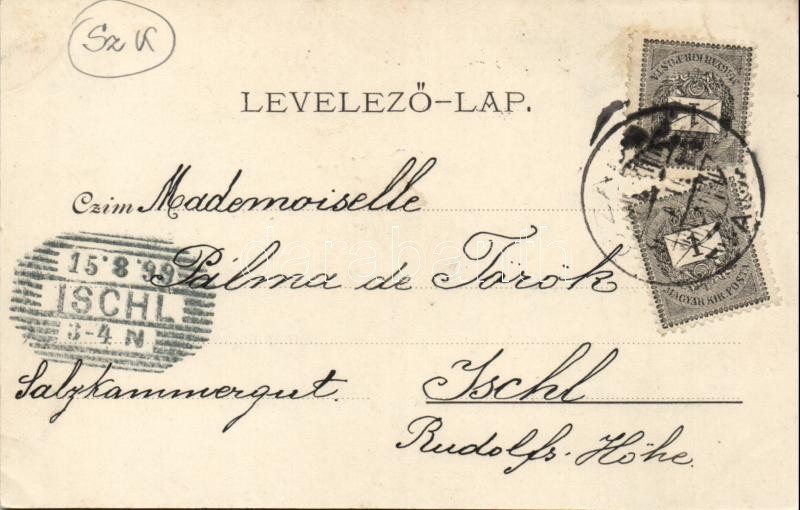 Sz K
LEVELEZŐ-LAP.
Czim Mademoiselle
Pálma de Török
Ischl
Salzkammergut.
Rudolfs-Höhe.
15 8 99
ISCHL
3-4 N
MAGYAR KIR. POSTA
1
MAGYAR KIR. POSTA
1
darabanth